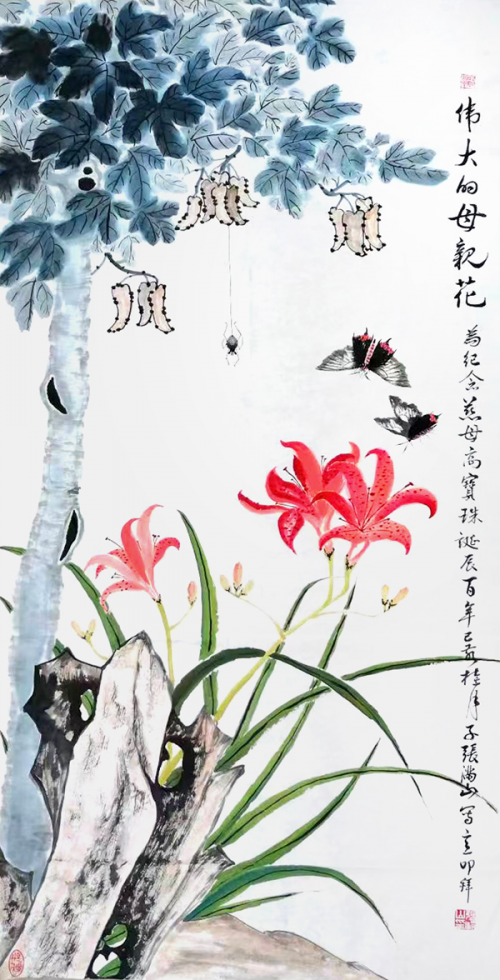 伟大的母親花
為纪念慈母高寶珠誕辰百年己亥桂月子張满山写意叩拜